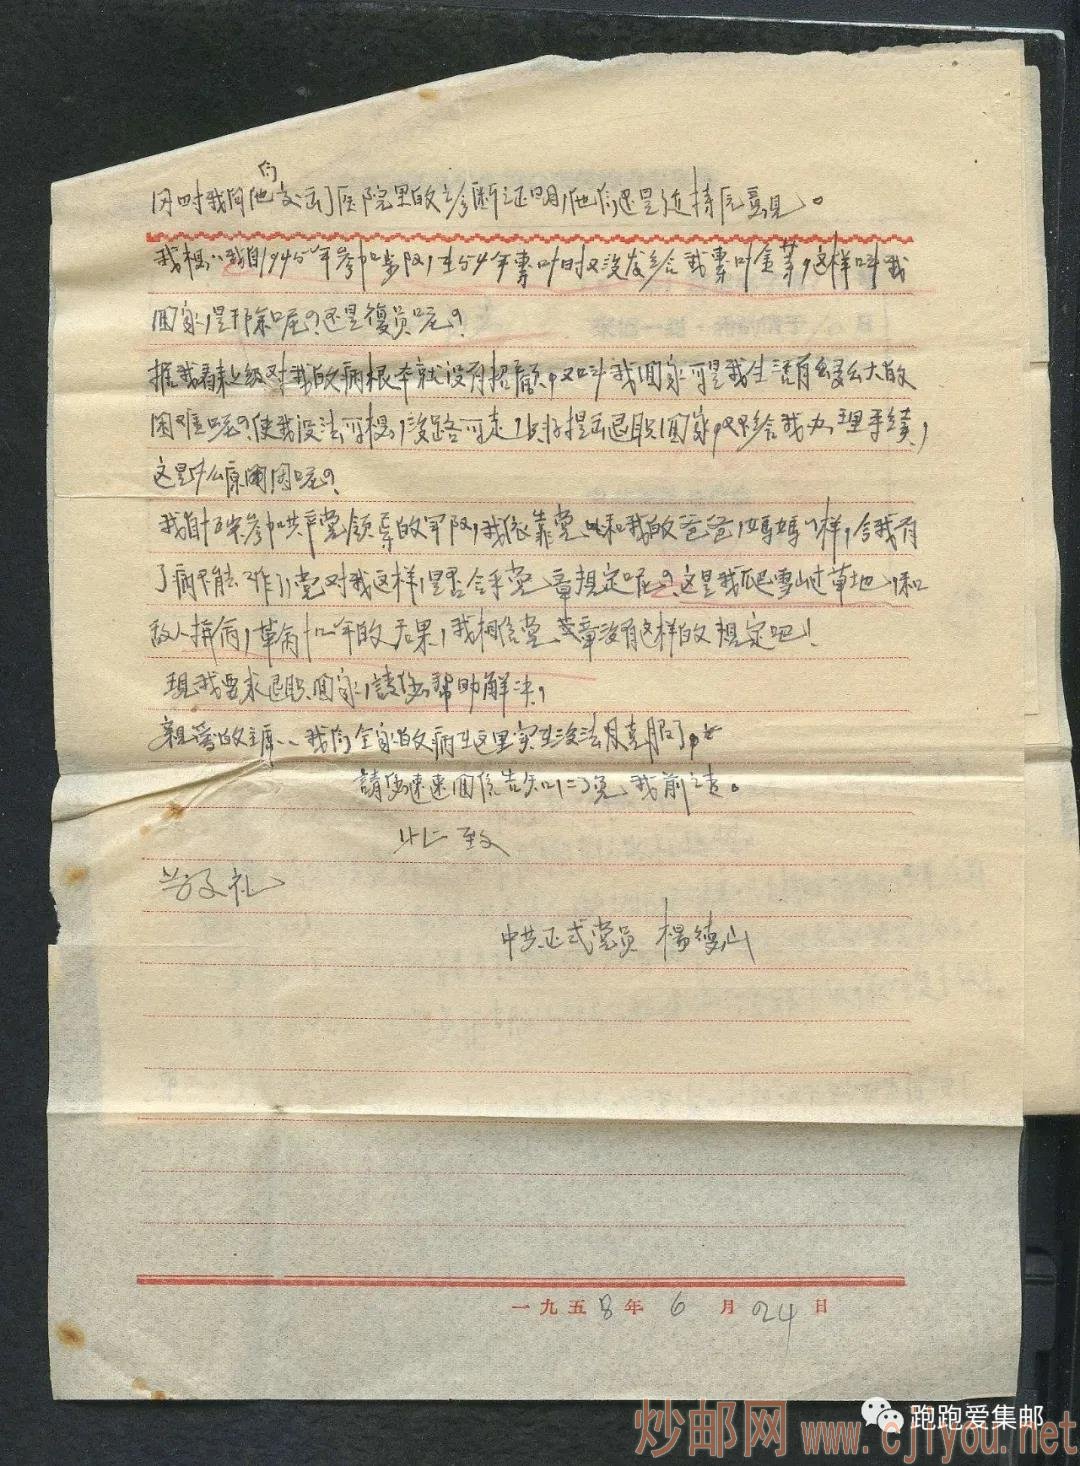 同时我向他们交出了医院里的诊断证明，他们还是延持原意见。
我想：我自1945年参加部队，在54年专叶时又没发给我专叶金等，这样叫我
回家，是开除呢？还是復员呢？
据我看来上级对我的病根本就没有招顧，又叫我回家可是我生活有多么大的
困难呢？使我没法可想，没路可走，只好提出退职回家，又不给我办理手续，
这是什么原因呢？
我自十五岁参加共产党领导的军队，我依靠党以和我的爸爸，媽媽一样，今我有
了病不能工作了，党对我这样，是否合乎党章規定呢？这是我爬雪山过草地，和
敌人拼病，革病十几年的后果，我相信党章没有这样的規定吧！
現我要求退职回家，請您幫助解决，
親愛的主席：我们全家的病在这里实在没法克服了，
請您速速回信告知，以免我前去。
此致
敬礼
中共正式党员 楊德山
一九五8年6月24日
跑跑爱集邮
炒邮网 www.cjiyou.net